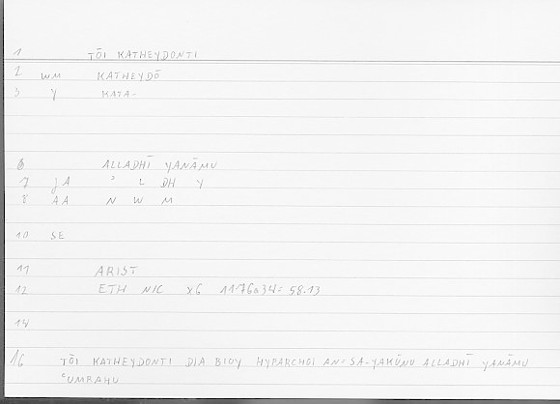 1 TŌI KATHEYDONTI
2 WM KATHEYDŌ
3 Y KATA-
6 ALLADHĪ YANĀMU
7 JA ʾ L DH Y
8 AA N W M
10 SE
11 ARIST
12 ETH NIC X6 1176a34= 58.13
14
16 TŌI KATHEYDONTI DIA BIOY HYPARCHOI AN=SA-YAKŪNU ALLADHĪ YANĀMU
ʿUMRAHU